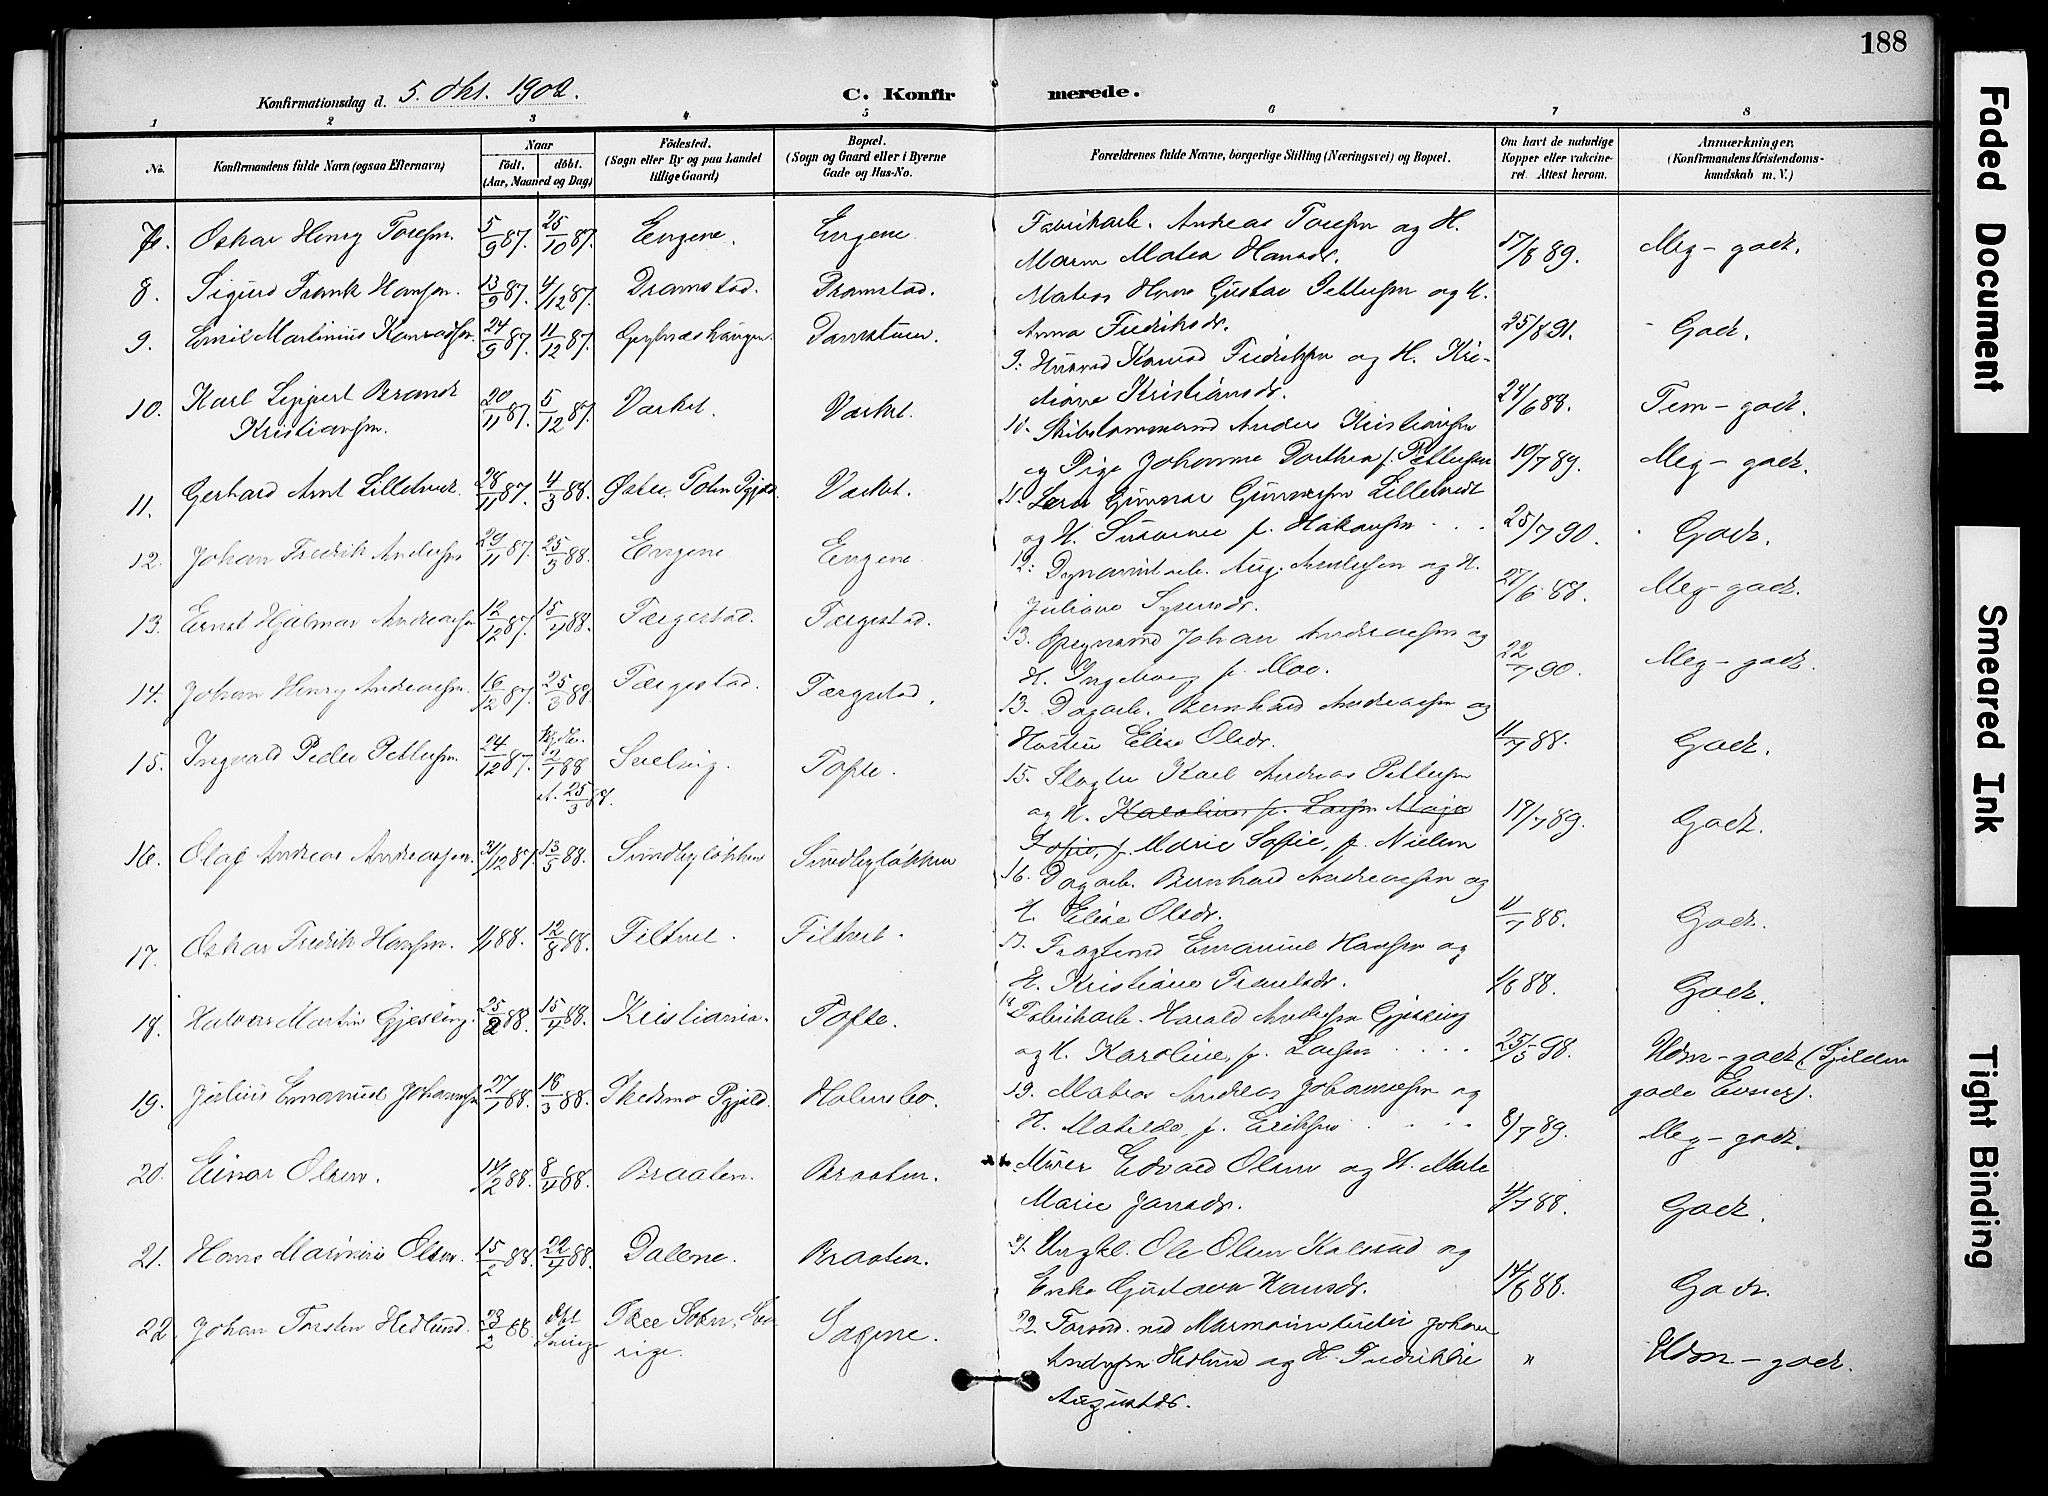 188
Konfirmationsdag d. 5. Okt. 1902.
C. Konfirmerede.
1 2 3 4 5 6 7 8
No.
Konfirmandens fulde Navn (ogsaa Efternavn)
Naar
født. døbt.
(Aar, Maaned og Dag)
Fødested.
(Sogn eller By og paa Landet
tillige Gaard)
Bopæl.
(Sogn og Gaard eller i Byerne
Gade og Hus-No.
Forældrenes fulde Navne, borgerlige Stilling (Næringsvei) og Bopæl.
Om havt de naturlige
Kopper eller vakcine-
ret. Attest herom.
Anmærkninger.
(Konfirmandens Kristendoms-
kundskab m. V.)
7. Oskar Henry Toresen. 5/9 87. 25/10 87. Engene. Engene.
Fabrikarb. Andreas Toresen og H.
Maren Matea Hansdr. 17/8 89. Meg-godt.
8. Sigurd Frank Hansen. 13/9 87. 4/12 87. Dramstad. Dramstad.
Matros Hans Gustav Pettersen og H.
Anna Fredriksdr. 25/8 91. Godt.
9. Emil Martinius Konradsen 24/9 87. 11/12 87.
9. Husmd Konrad Fredriksen og H. Kri-
stiane Kristiansdr. 24/6 88. Tem-godt.
10. Karl Brandt
Kristiansen. 20/11 87. 5/12 87. Værket. Værket.
10. Skibstømmermd Anders Kristiansen
og Pige Johanne Dorthea f. Pettersen 19/7 89. Meg-godt.
11. Gerhard Arnt Lilletvedt. 28/11 87. 4/3 88. Østre Toten Pgjæld. Værket.
11. Lærer Gunnar Gunnersen Lilletvedt
og H. Susanne f. Hakansen 25/7 90. Godt.
12. Johan Fredrik Andersen 29/11 87. 25/3 88. Engene Engene
12. Dynamitarb. Aug. Andersen og H.
Juliane Syversdr. 27/6 88. Meg-godt.
13. Ernst Hjalmar Andreasen 12/12 87. 15/4 88. Færgestad. Færgestad.
13. Johan Andreasen og
H. Ingeborg f. Moe. 22/7 90. Meg-godt.
14. Johan Henry Andreasen. 16/12 87. 25/3 88. Færgestad. Færgestad.
13. Dagarb. Bernhard Andreasen og
Hustru Elise Olsdr. 11/7 88. Godt.
15. Ingvald Peder Pettersen. 24/12 87. Hjdb. 2/1 88 st. 25/3 88. Sætre. Tofte.
15. Slagter Karl Andreas Pettersen
og H. Karoline, f. Larsen Maja
Sofie, f. Marie Sofie, f. Nielsen 19/7 89. Godt.
16. Olaf Andreas Andreassen. 31/12 87. 13/5 88. Sundbyløkken Sundbyløkken
16. Dagarb. Bernhard Andreasen og
H. Elise Olsdr. 11/7 88. Godt.
17. Oskar Fredrik Hansen. 1/1 88. 12/8 88. Filtvet. Filtvet.
17. Fragtemd Emanuel Hansen og
H. Kristiane Frantsdr. 1/6 88. Godt.
18. Halvor Martin Gjessing. 25/2 88. 15/4 88. Kristiania. Tofte.
18 Fabrikarb. Harald Andersen Gjessing
og H. Karoline, f. Larsen 25/5 98. Udm-godt (Sjelden
gode Evner).
19. Julius Emanuel Johansen 27/1 88. 18/3 88. Skedsmo Pgjæld. Holmsbo.
19. Matros Andreas Johannesen og
H. Matilde, f. Eriksen 8/7 89. Meg-godt.
20. Einar Olsen. 14/2 88. 8/4 88. Braaten. Braaten.
20. Murer Edvard Olsen og H. Marte
Marie Jansdr. 4/7 88. Godt.
21. Hans Marinius Olsen. 15/2 88. 22/4 88. Dalene. Braaten.
21. Ungkl. Ole Olsen Kolsrud og
Enke Gustava Hansdr. 14/6 88. Godt.
22. Johan Torsten Hedlund. 23/2 88. døbt Sverige Sogn, Sve-
rige. Sagene.
22. Johan
Andersen Hedlund og H. Fredrikke
Augustdr. " Udm-godt.
Faded Document
Smeared Ink
Tight Binding